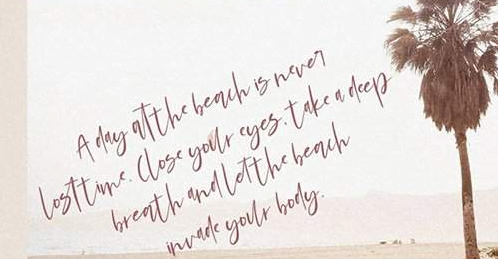 A day at the beach is never
lost time. Close your eyes, take a deep
breath and let the beach
invade your body.